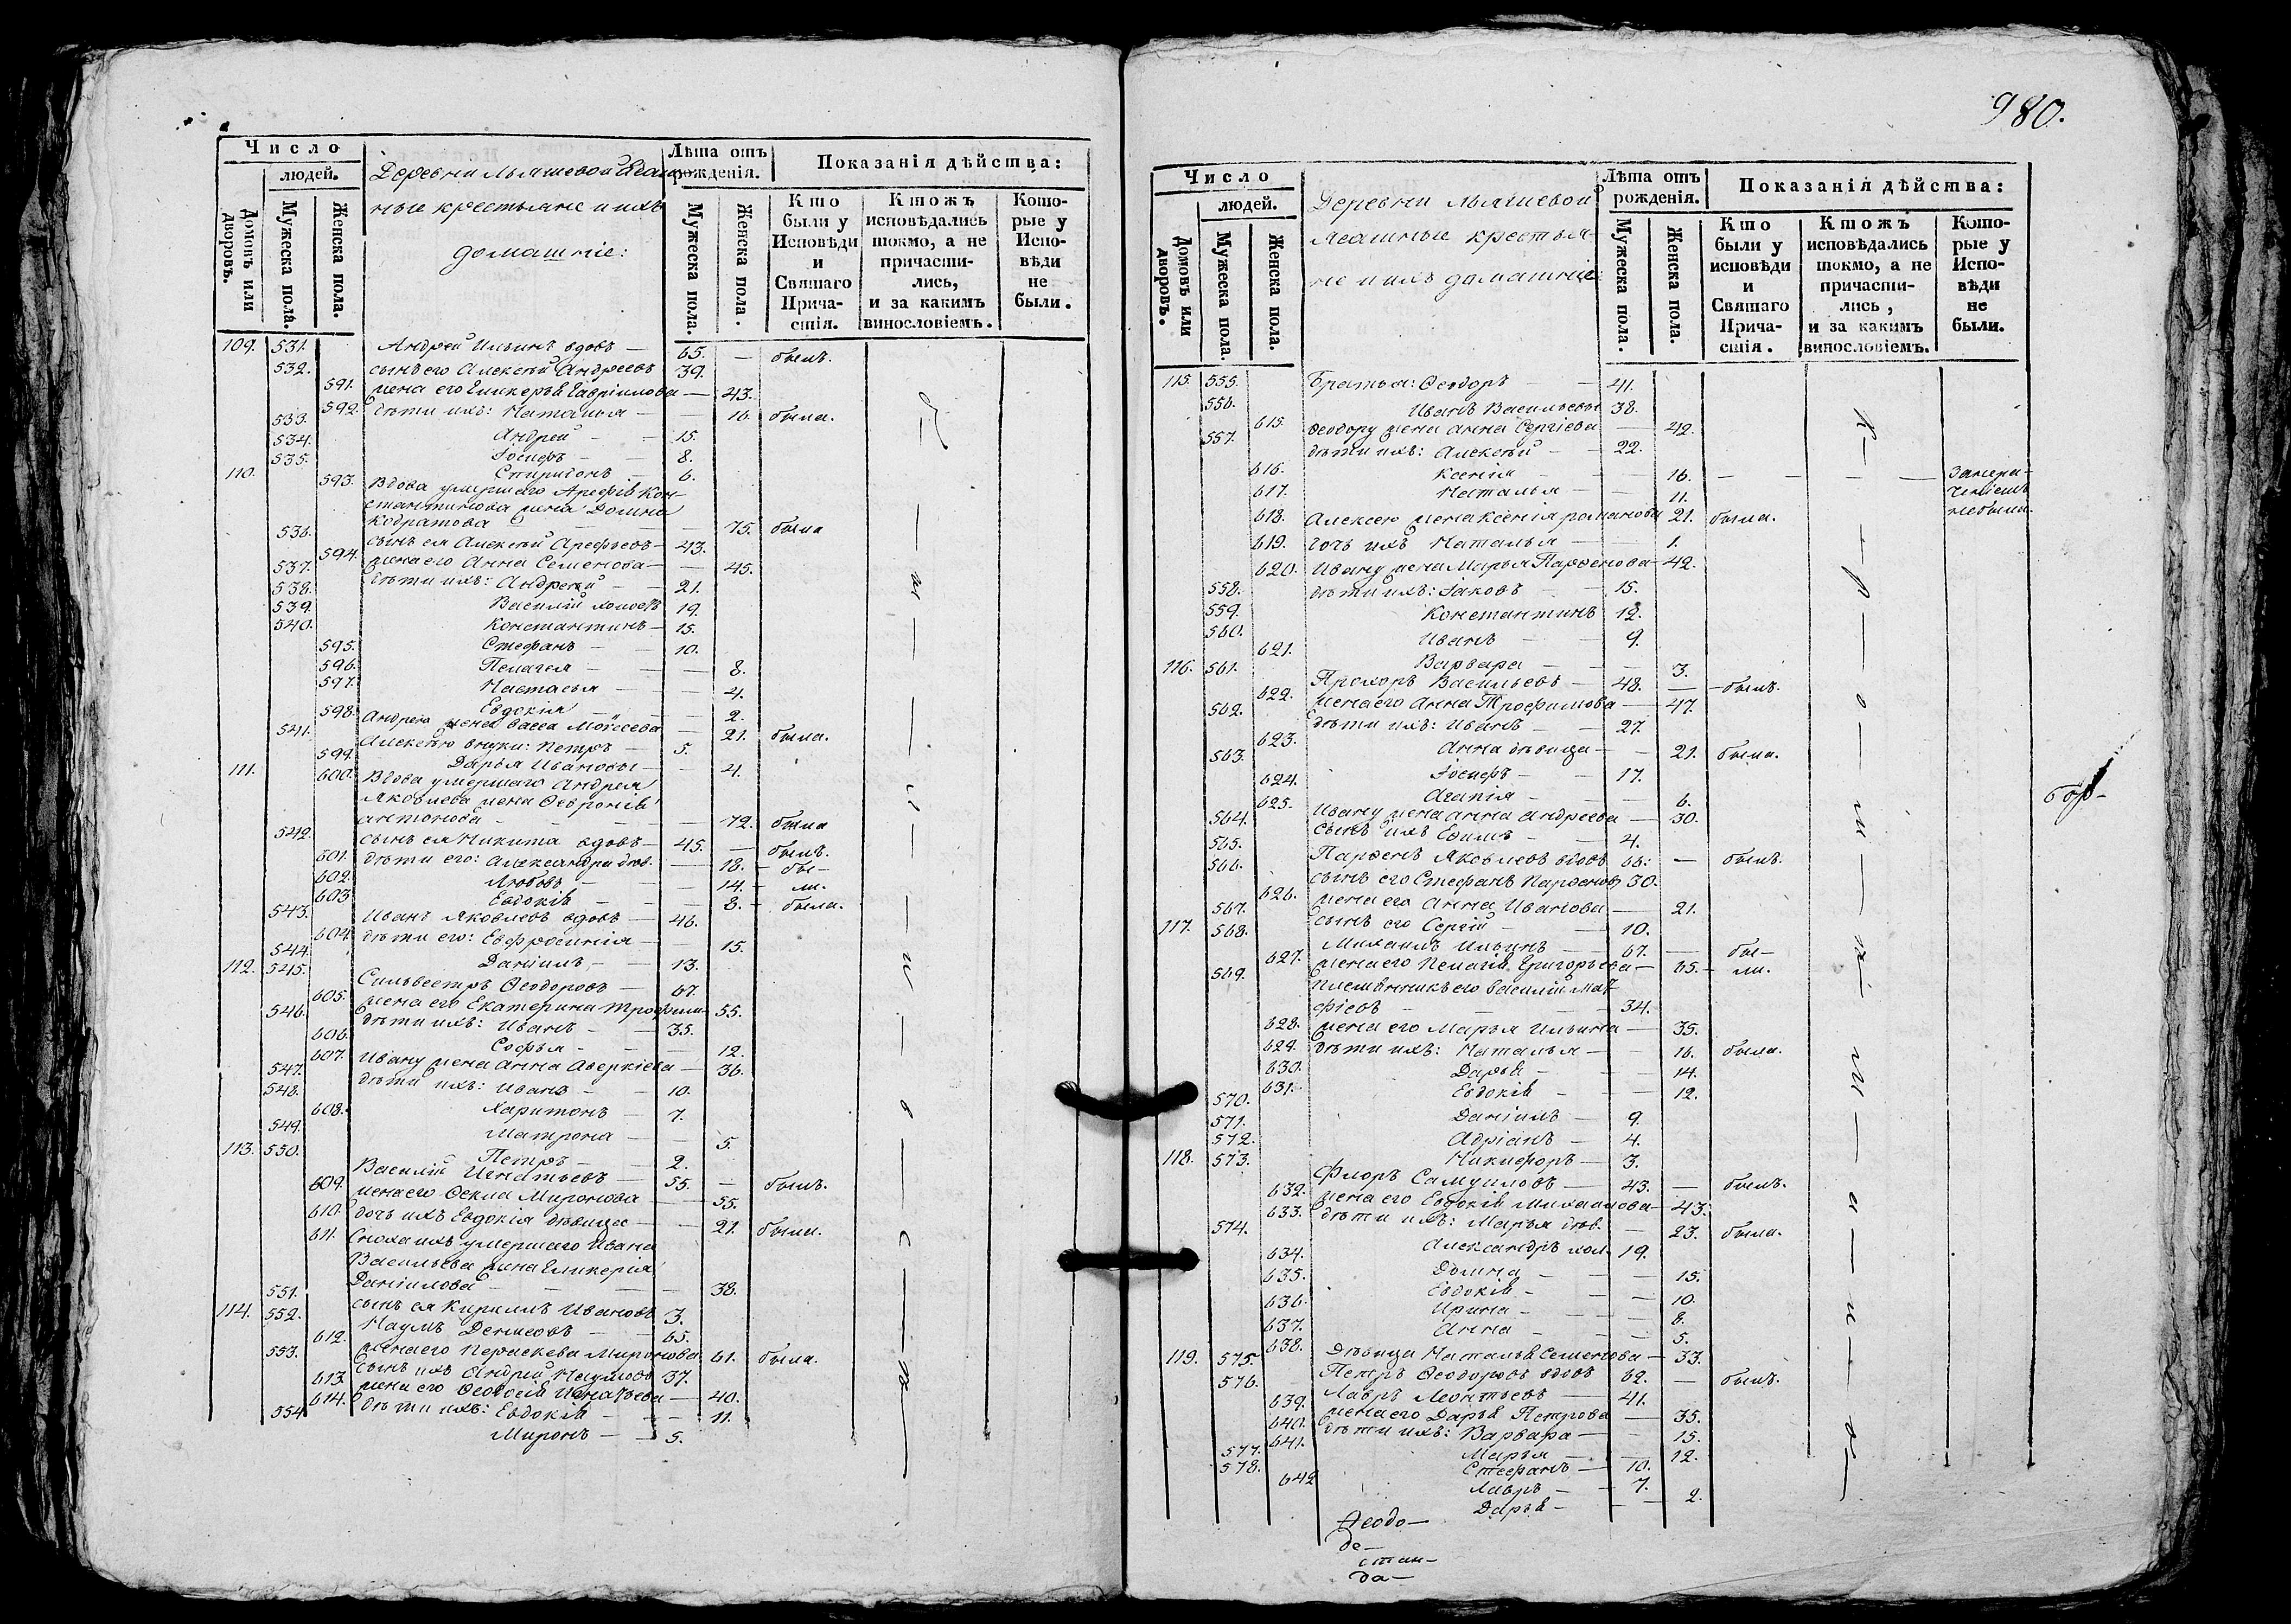 Число
людей.
Домовъ или дворовъ.
Мужеска пола.
Женска пола.
Деревни Мыяшевой Ясаш-
ные крестьяне и ихъ
домашніе:
Лѣта отъ
рожденія.
Мужеска пола.
Женска пола.
Показанія дѣйства:
Кто
были у
Исповѣди
и
Святаго
Прича-
стія.
Ктожъ
исповѣдались
токмо, а не
причасти-
лись,
и за какимъ
винословіемъ.
Кото-
рые у
Испо-
вѣди
не
были.
109. 531. Андрей Ильинъ вдовъ — 65. — былъ.
532. сынъ его Алексѣй Андреевъ 39.
591. жена его Гликерія Гавріилова — 43.
592. дѣти ихъ: Наталья — — 16. была.
533. Андрей — — 15.
534. Іосифъ — — 8.
535. Спиридонъ — 6.
110. 593. Вдова умершаго Арефія Кон-
стантинова жена Домна
Кодратова — — 75. была
536. сынъ ея Алексѣй Арефьевъ — 43.
594. жена его Анна Семенова — — 45.
537. дѣти ихъ: Андрей — — 21.
538. Василій холостъ 19.
539. Константинъ — 15.
540. Стефанъ — — 10.
595. Пелагея — — — 8.
596. Настасья — — 4.
597. Евдокія — — 2.
598. Андрею жена Васса Моѵсеева — 21. была.
541. Алексѣю внуки: Петръ — 5.
599. Дарья Ивановы — — 4.
111. 600. Вдова умершаго Андрея
Яковлева жена Февронія
Антонова — — — — 72. была
542. сынъ ея Никита вдовъ — 45. — былъ.
601. дѣти его: Александра дѣв. — 18. — бы-
602. Любовь — — 14. — ли.
603. Евдокія — — 8. — была.
543. Иванъ Яковлевъ вдовъ — 46.
604. дѣти его: Евфросинія — — 15.
544. Даніилъ — 13.
112. 545. Сильвестръ Ѳеодоровъ — 67.
605. жена его Екатерина Трофим. 55.
546. дѣти ихъ: Иванъ — — 35.
606. Софья — — — 12.
607. Ивану жена Анна Аверкіева — 36.
547. дѣти ихъ: Иванъ — — 10.
548. Харитонъ — — 7.
608. Матрона — — 5.
549. Петръ — — 2.
113. 550. Василій Игнатьевъ — 55. — былъ.
609. жена его Ѳекла Миронова — — 55.
610. дочь ихъ Евдокія дѣвица — — 21. была.
611. Сноха ихъ умершаго Ивана
Васильева жена Гликерія
Даніилова — — — 38.
551. сынъ ея Кириллъ Ивановъ 3.
114. 552. Наумъ Денисовъ — — 65.
612. жена его Параскева Миронова 61. была.
553. сынъ ихъ Андрей Наумовъ 37.
613. жена его Ѳеодосія Игнатьева — 40.
614. дѣти ихъ: Евдокія — — 11.
554. Миронъ — — 5.
980.
Число
людей.
Домовъ или дворовъ.
Мужеска пола.
Женска пола.
Деревни Мыяшевой
Ясашные крестья-
не и ихъ домашніе
Лѣта отъ
рожденія.
Мужеска пола.
Женска пола.
Показанія дѣйства:
Кто
были у
исповѣди
и
Святаго
Прича-
стія.
Ктожъ
исповѣдались
токмо, а не
причасти-
лись,
и за какимъ
винословіемъ.
Кото-
рые у
Испо-
вѣди
не
были.
115. 555. Братья: Ѳеодоръ — — 41.
556. Иванъ Васильевы 38.
615. Ѳеодору жена Анна Сергіева — 42.
557. дѣти ихъ: Алексѣй — — 22.
616. Ксенія — — 16. — — — —
617. Наталья — — 11.
618. Алексею жена Ксенія Романова 21. была. не были.
619. дочь ихъ Наталья — — 1.
620. Ивану жена Марья Парѳенова — 42.
558. дѣти ихъ: Іаковъ — — 15.
559. Константинъ 12.
560. Иванъ — — 9.
621. Варвара — — — 3.
116. 561. Прохоръ Васильевъ — 48. — — былъ.
622. жена его Анна Трофимова — 47.
562. дѣти ихъ: Иванъ — — 27.
623. Анна дѣвица — — 21. была.
563. Іосифъ — — 17.
624. Агапія — — — 6.
625. Ивану жена Анна Андреева — 30.
564. сынъ ихъ Ефимъ — 4.
565. Парѳенъ Яковлевъ вдовъ 66. — былъ.
566. сынъ его Стефанъ Парѳеновъ 30.
626. жена его Анна Иванова — 21.
567. сынъ его Сергій — — 10.
117. 568. Михаилъ Ильинъ — — 67. — бы-
627. жена его Пелагія Григорьева — 65. — ли.
569. племянникъ его Василій Мат-
фіевъ — — — — 34.
628. жена его Марья Ильина — 35.
629. дѣти ихъ: Наталья — — 16. была.
630. Дарья — — — 14.
631. Евдокія — — — 12.
570. Даніилъ — 9.
571. Адріанъ — 4.
572. Никифоръ — 3.
118. 573. Флоръ Самуиловъ — 43. — былъ.
632. жена его Евдокія Михайлова — 43.
633. дѣти ихъ: Марья дѣв. — 23. была.
574. Александръ хол. 19.
634. Домна — — — 15.
635. Евдокія — — — 10.
636. Ирина — — — 8.
637. Анна — — — 5.
638. Дѣвица Наталья Семенова — 33.
119. 575. Петръ Ѳеодоровъ вдовъ 62. — былъ.
576. Лавръ Леонтьевъ — 41.
639. жена его Дарья Петрова — 35.
640. дѣти ихъ: Варвара — — 15.
641. Марья — — 12.
577. Стефанъ — 10.
578. Лавръ — — 7.
642 Дарья — — — 2.
Ѳеодо-